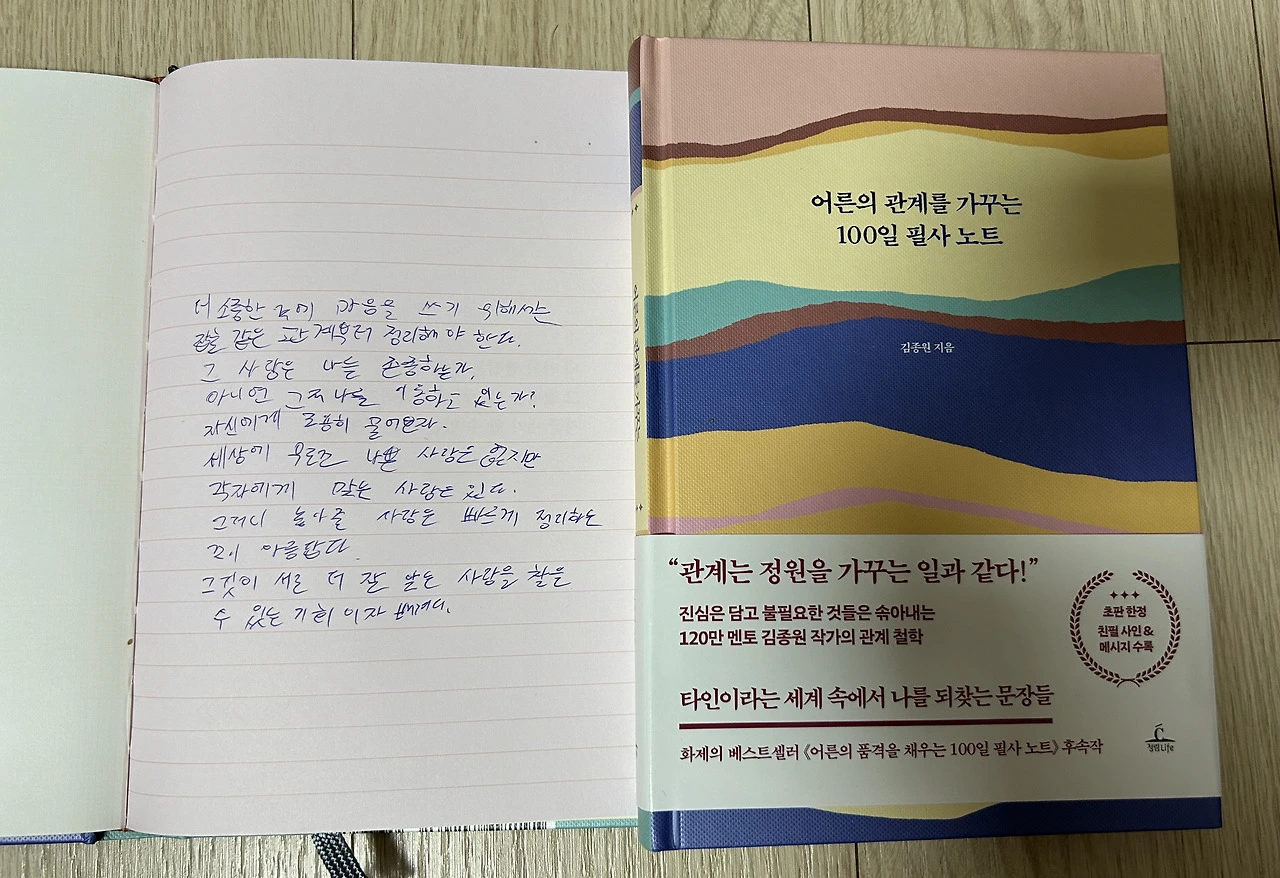 더 소중한 곳에 마음을 쓰기 위해서는
같은 관계부터 정리해야 한다.
그 사람은 나를 존중하는가,
아니면 그저 나를 이용하고 있는가?
자신에게 조용히 물어보라.
세상에 무조건 나쁜 사람은 없지만
각자에게 맞는 사람은 있다.
그러니 놓아줄 사람은 빠르게 정리하는
것이 아름답다.
그것이 서로 더 잘 맞는 사람을 찾을
수 있는 기회이자 배려다.
어른의 관계를 가꾸는
100일 필사 노트
김종원 지음
“관계는 정원을 가꾸는 일과 같다!”
진심은 담고 불필요한 것들은 솎아내는
120만 멘토 김종원 작가의 관계 철학
초판 한정
친필 사인 &
메시지 수록
타인이라는 세계 속에서 나를 되찾는 문장들
화제의 베스트셀러 《어른의 품격을 채우는 100일 필사 노트》 후속작
청림Life